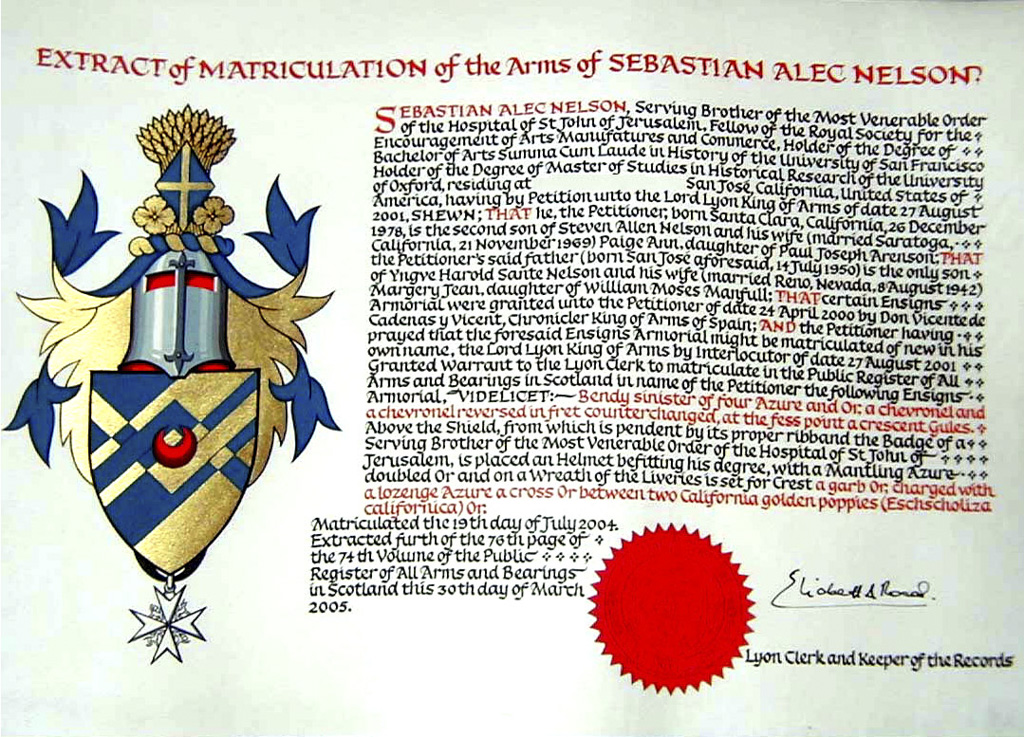 EXTRACT of MATRICULATION of the Arms of SEBASTIAN ALEC NELSON
SEBASTIAN ALEC NELSON, Serving Brother of the Most Venerable Order
of the Hospital of St John of Jerusalem, Fellow of the Royal Society for the
Encouragement of Arts Manufatures and Commerce, Holder of the Degree of
Bachelor of Arts Summa Cum Laude in History of the University of San Francisco
Holder of the Degree of Master of Studies in Historical Research of the University
of Oxford, residing at San José, California, United States of
America, having by Petition unto the Lord Lyon King of Arms of date 27 August
2001, SHEWN; THAT he, the Petitioner, born Santa Clara, California, 26 December
1978, is the second son of Steven Allen Nelson and his wife (married Saratoga,
California, 21 November 1969) Paige Ann, daughter of Paul Joseph Arenson; THAT
the Petitioner's said father (born San José aforesaid, 14 July 1950) is the only son
of Yngve Harold Sante Nelson and his wife (married Reno, Nevada, 8 August 1942)
Margery Jean, daughter of William Moses Manfull; THAT certain Ensigns
Armorial were granted unto the Petitioner of date 24 April 2000 by Don Vicente de
Cadenas y Vicent, Chronicler King of Arms of Spain; AND the Petitioner having
prayed that the foresaid Ensigns Armorial might be matriculated of new in his
own name, the Lord Lyon King of Arms by Interlocutor of date 27 August 2001
Granted Warrant to the Lyon Clerk to matriculate in the Public Register of All
Arms and Bearings in Scotland in name of the Petitioner the following Ensigns
Armorial, VIDELICET:— Bendy sinister of four Azure and Or, a chevronel and
a chevronel reversed in fret counterchanged, at the fess point a crescent Gules.
Above the Shield, from which is pendent by its proper ribband the Badge of a
Serving Brother of the Most Venerable Order of the Hospital of St John of
Jerusalem, is placed an Helmet befitting his degree, with a Mantling Azure
doubled Or and on a Wreath of the Liveries is set for Crest a garb Or, charged with
a lozenge Azure a cross Or between two California golden poppies (Eschscholiza
californica) Or.
Matriculated the 19th day of July 2004.
Extracted furth of the 76th page of
the 74th Volume of the Public
Register of All Arms and Bearings
in Scotland this 30th day of March
2005.
Lyon Clerk and Keeper of the Records